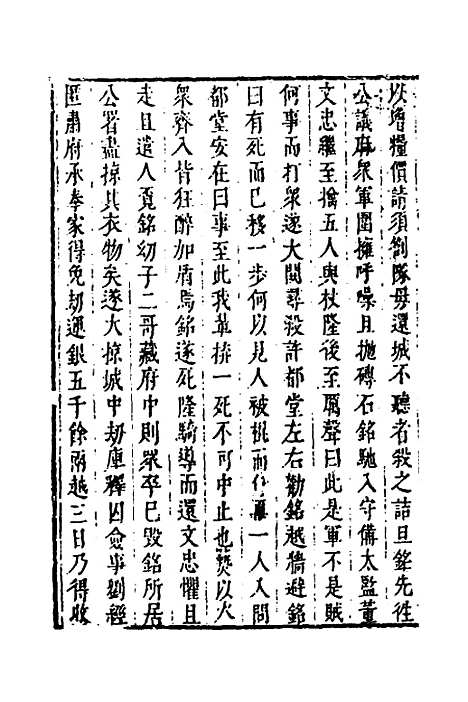 以增糧價請須劄隊毋還城不聽者殺之詰旦銘先徃
公議麻眾軍圍擁呼噪且拋磚石銘馳入守備太監董
文忠繼至擒五人與杖隆後至厲聲曰此是軍不是賊
何事而打眾遂大鬨尋殺許都堂左右勸銘越牆避銘
曰有死而已移一步何以見人被梃而仆一人入問
都堂安在曰事至此我輩拚一死不可中止也爇以火
眾齊入皆狂醉加盾焉銘遂死隆騎導而還文忠懼且
走且遣人覓銘幼子二哥藏府中則眾卒已毀銘所居
公署盡掠其衣物矣遂大掠城中刼庫釋囚僉事劉經
匿肅府承奉家得免刼通銀五千餘兩越三日乃得收